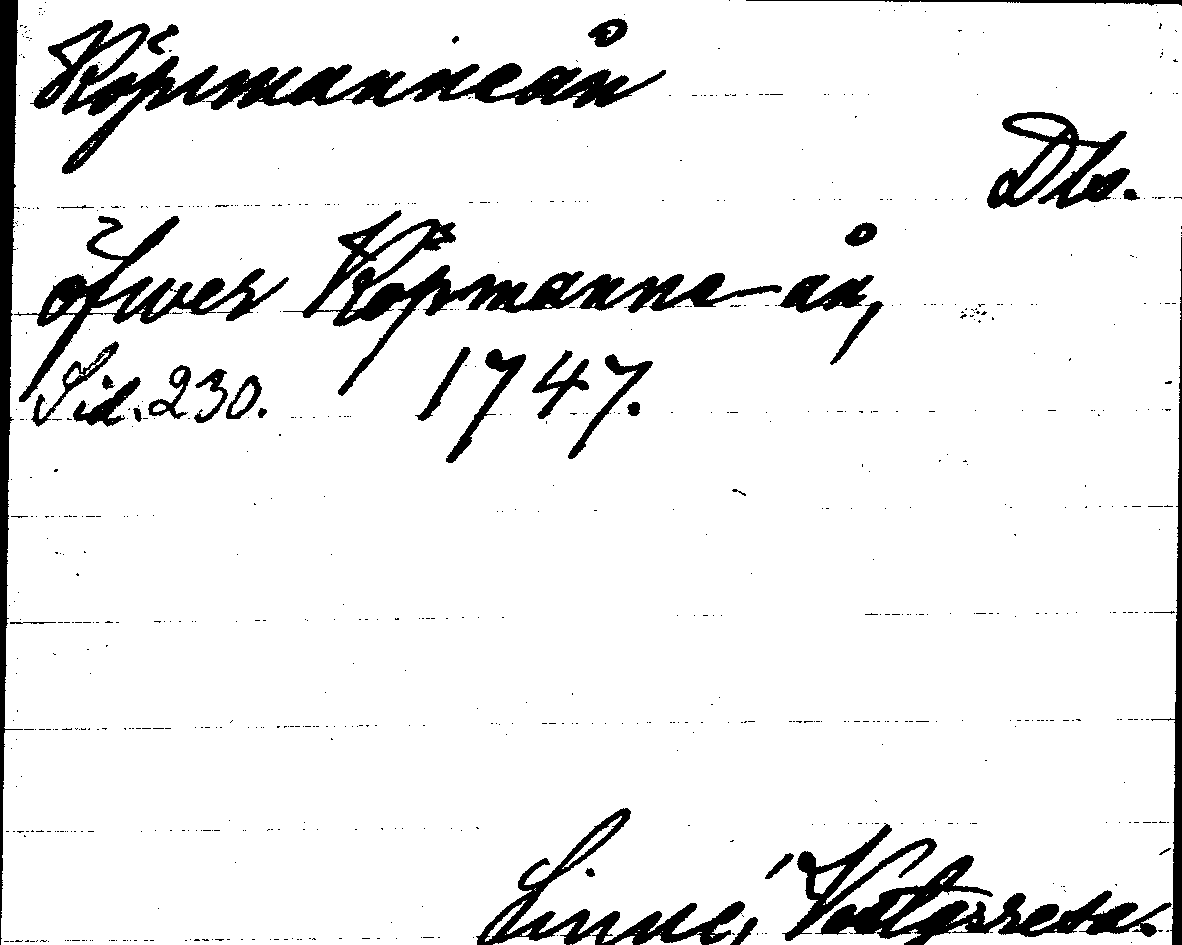 Köpmanneån
Dls.
öfwer Köpmanne-ån,
Sid. 230. 1747.
Linné, Vestg.resa.